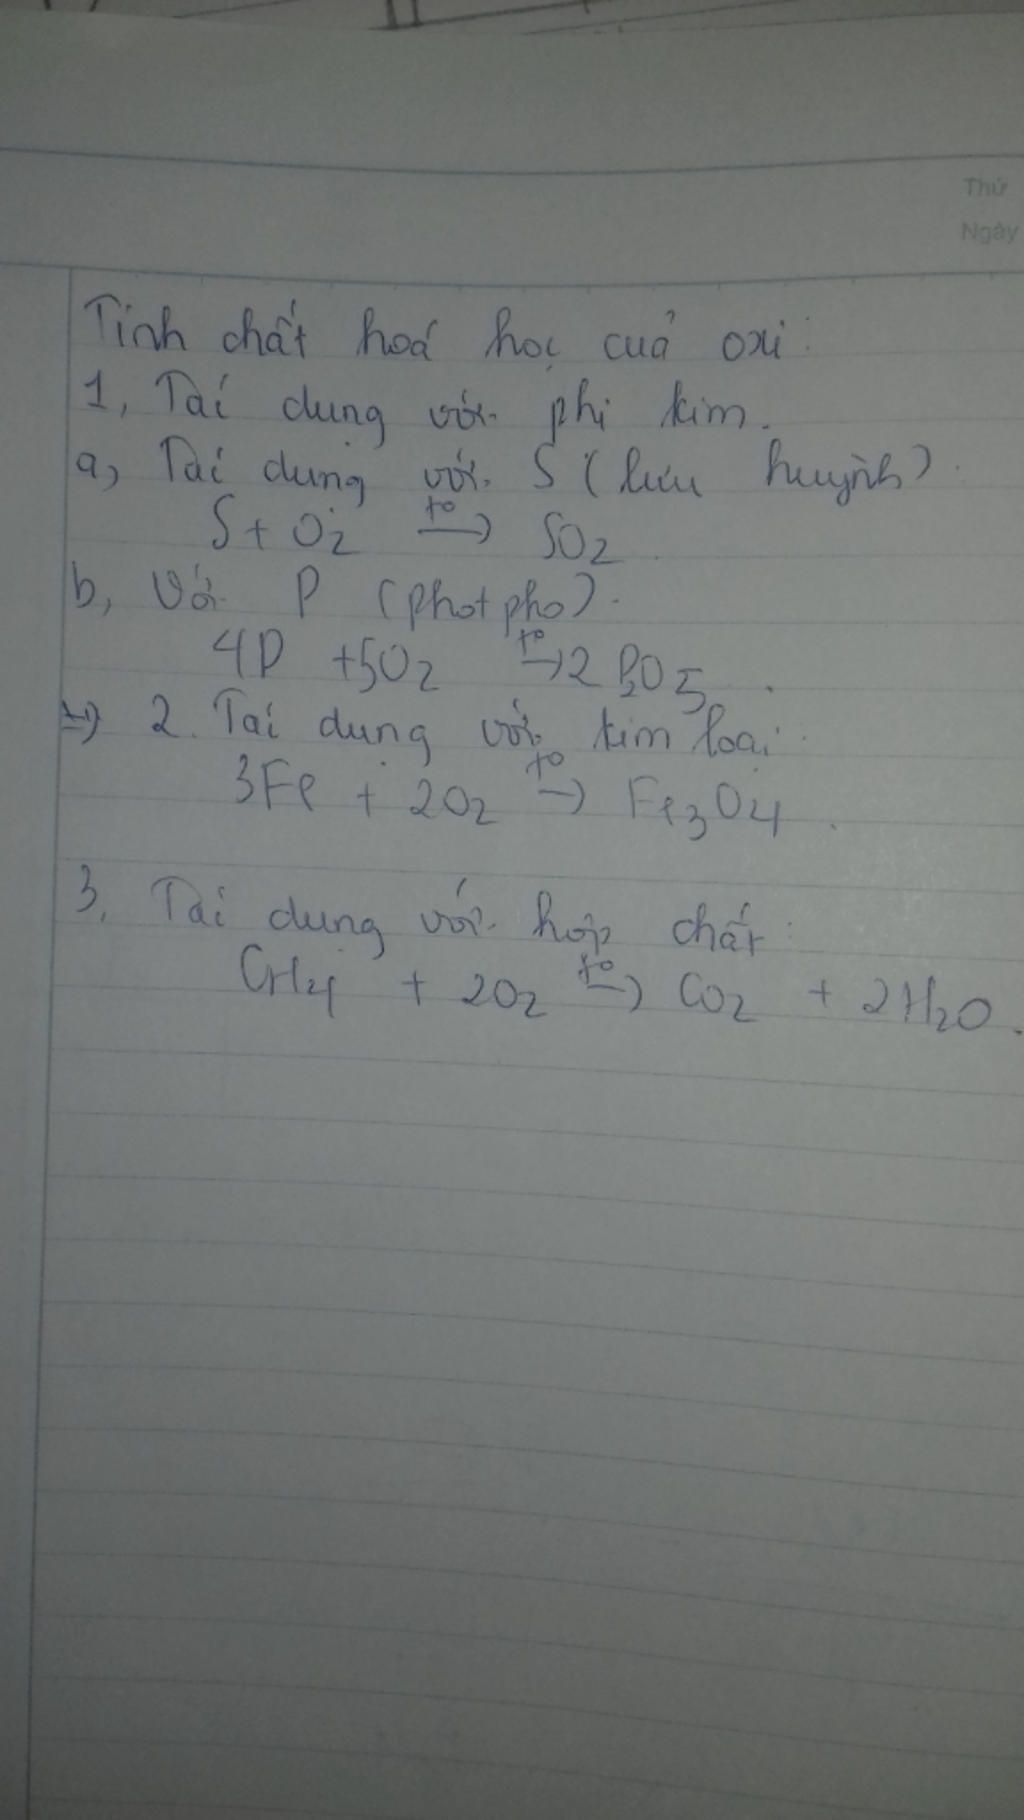 Thứ
Ngày
Tính chất hoá học của oxi:
1, Tác dụng với phi kim.
a, Tác dụng với S (lưu huỳnh).
S + O2 t° → SO2
b, Với P (photpho).
4P + 5O2 t° → 2P2O5.
2. Tác dụng với kim loại:
3Fe + 2O2 t° → Fe3O4.
3, Tác dụng với hợp chất:
CH4 + 2O2 t° → CO2 + 2H2O.